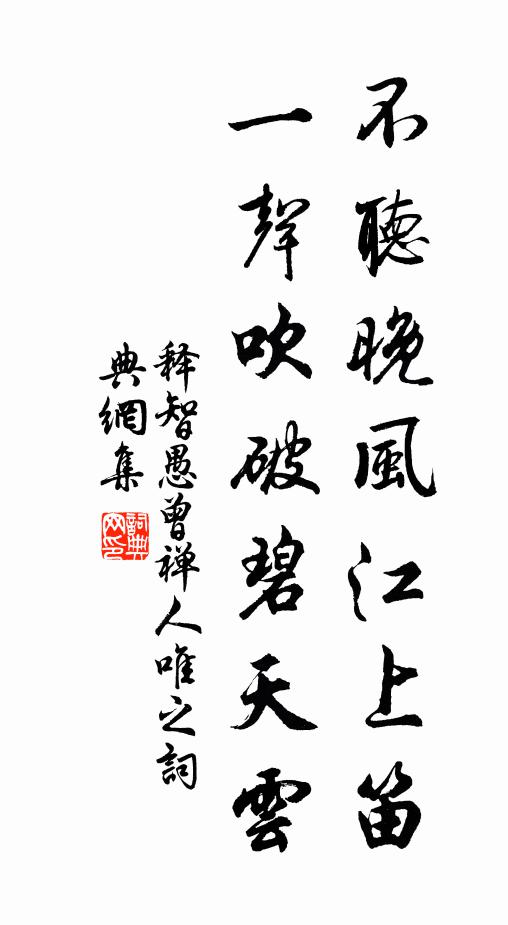 不聽晚風江上笛
一聲吹破碧天雲
释智愚曾禅人唯之詞
典網集
詞典
網印